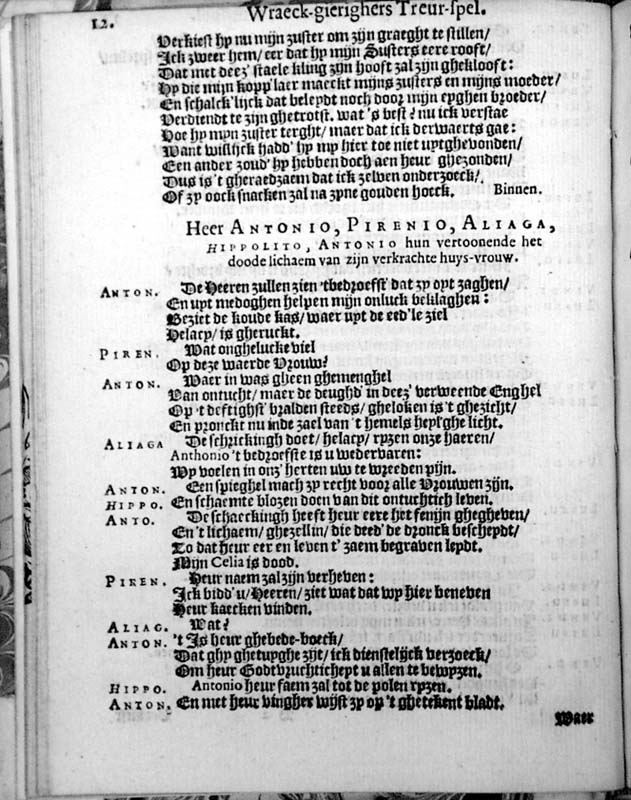 12. Wraeck-gierighers Treur-spel.
Verkiest hy nu mijn zuster om zijn graeght te stillen/
Ick zweer hem/ eer dat hy mijn Susters eere rooft/
Dat met deez' staele kling zyn hooft zal zijn gheklooft:
Hy die mijn kopp'laer maeckt mijns zusters en mijns moeder/
En schalck'lijck dat beleydt noch door mijn eyghen broeder/
Verdiendt te zijn ghetrotst. wat 's best? nu ick verstae
Hoe hy mijn zuster terght/ maer dat ick derwaerts gae:
Want willijck hadd' hy my hier toe niet uytghevonden/
Een ander zoud' hy hebben doch aen heur ghezonden/
Dus is 't gheraedzaem dat ick zelven onderzoeck/
Of zy oock snacken zal na zyne gouden hoeck. Binnen.
Heer ANTONIO, PIRENIO, ALIAGA,
HIPPOLITO, ANTONIO hun vertoonende het
doode lichaem van zijn verkrachte huys-vrouw.
ANTON. De Heeren zullen zien 'tbedroefst' dat zy oyt zaghen/
En uyt medoghen helpen mijn onluck beklaghen:
Beziet de koude kas/ waer uyt de eed'le ziel
Helacy/ is gheruckt.
PIREN. Wat onghelucke viel
Op deze waerde Vrouw?
ANTON. Waer in was gheen ghemenghel
Van ontucht/ maer de deughd' in deez' verweende Enghel
Op 't deftighst' bralden steeds/ gheloken is 't ghezicht/
En pronckt nu inde zael van 't hemels heyl'ghe licht.
ALIAGA De schrickingh doet/ helacy/ ryzen onze haeren/
Anthonio 't bedroefste is u wedervaren:
Wy voelen in onz' herten uw te wreeden pijn.
ANTON. Een spieghel mach zy recht voor alle Vrouwen zijn.
HIPPO. En schaemte blozen doen van dit ontuchtich leven.
ANTO. De schaeckingh heeft heur eere het fenijn ghegheven/
En 't lichaem/ ghezellin/ die deed' de dronck bescheydt/
To dat heur eer en leven t' zaem begraven leydt.
Mijn Celia is dood.
PIREN. Heur naem zal zijn verheven:
Ick bidd' u/ Heeren/ ziet wat dat wy hier beneven
Heur kaecken vinden.
ALIAG. Wat?
ANTON. 't Is heur ghebede-boeck/
Dat ghy ghetuyghe zijt/ ick dienstelijck verzoeck/
Om heur Godtvruchticheyt u allen te bewyzen.
HIPPO. Antonio heur faem zal tot de polen ryzen.
ANTON. En met heur vingher wijst zy op 't ghetekent bladt.
Waer